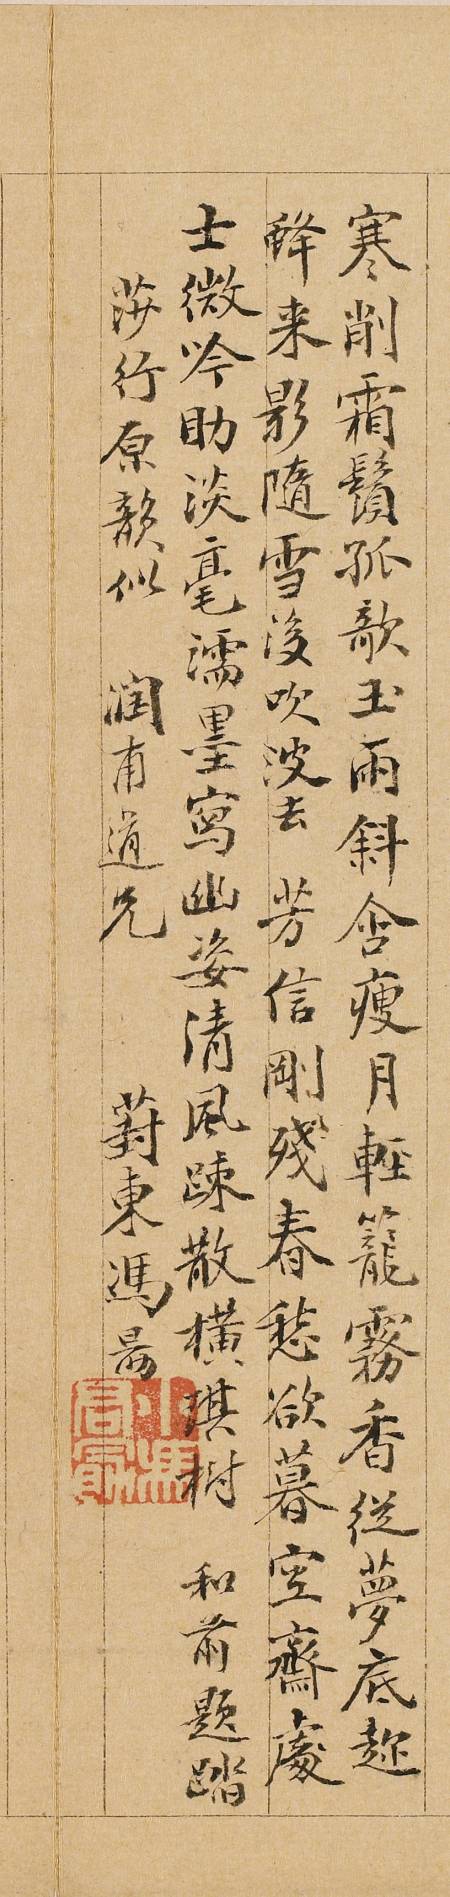 寒削霜鬚孤欹玉雨斜含瘦月輕籠霧香從夢底趂
蜂来影隨雪後吹波去 芳信剛殘春愁欲暮空齋處
士微吟助淡毫濡墨寫幽姿清風疎散橫琪樹 和前題踏
莎行原韻似 潤甫道兄 葑東馮勗